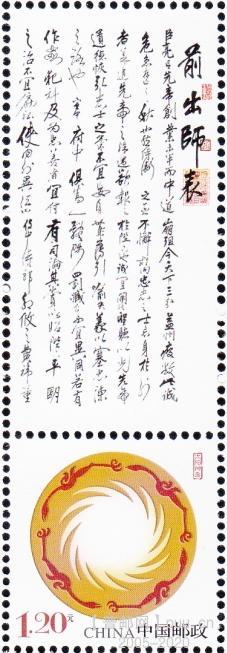 前出師表
臣亮言先帝創業未半而中道崩殂今天下三分益州疲敝此誠
危急存亡之秋也然侍衛之臣不懈於內忠志之士忘身於外
者蓋追先帝之殊遇欲報之於陛下也誠宜開張聖聽以光先帝
遺德恢弘志士之氣不宜妄自菲薄引喻失義以塞忠諫
之路也宮中府中俱為一體陟罰臧否不宜異同若有
作姦犯科及為忠善者宜付有司論其刑賞以昭陛下平明
之治不宜偏私使內外異法也侍中侍郎郭攸之費禕董
1.20元
CHINA中国邮政
2005-2020